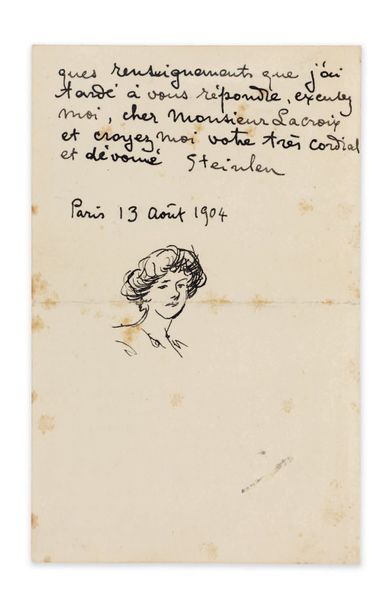 ques renseignements que j'ai
tardé à vous répondre, excusez
moi, cher Monsieur Lacroix
et croyez moi votre très cordial
et dévoué Steinlen
Paris 13 Août 1904